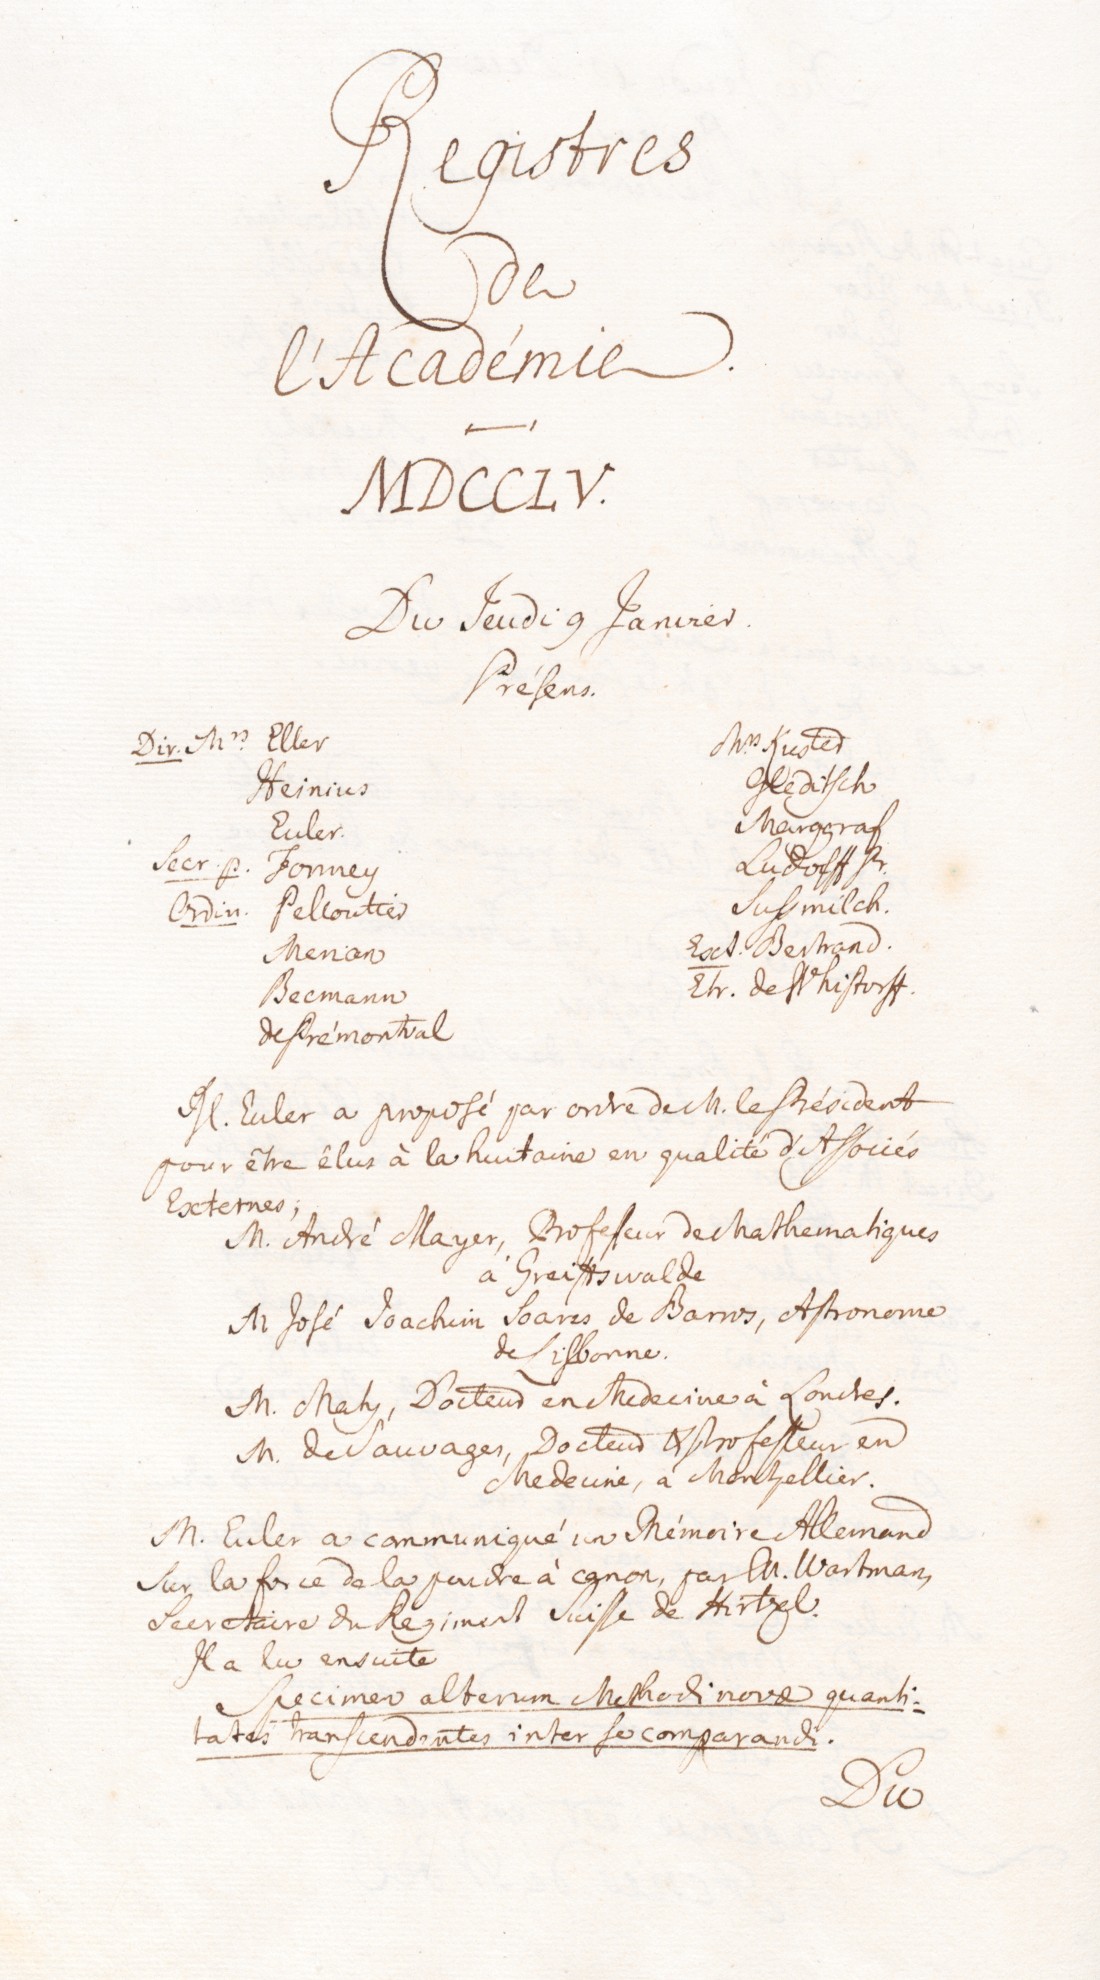 Registres
de
l'Académie.
MDCCLV.
Du Jeudi 9 Janvier.
Présens.
Dir. Mrs Eller
Heinius
Euler.
Secr. p. Formey
Ordin. Pelloutier
Merian
Becmann
de Prémontval
Mrs Kuster
Gleditsch
Marggraf
Ludolff Jr.
Sussmilch.
Ext. Bertrand.
Etr. de Whistorff.
M. Euler a proposé par ordre de M. le Président
pour être êlus à la huitaine en qualité d'Associés
Externes;
M. André Mayer, Professeur de Mathematiques
à Greiffswalde
M José Joachim Soares de Barros, Astronome
de Lisbonne.
M. Maty, Docteur en Medecine à Londres.
M. de Sauvages, Docteur & Professeur en
Medecine, à Montpellier.
M. Euler a communiqué un Mémoire Allemand
sur la force de la poudre à canon, par M. Wartman,
Secretaire du Regiment Suisse de Hirtzel.
Il a lu ensuite
Specimen alterum Methodi novæ quanti-
tates transcendentes inter se comparandi.
Du